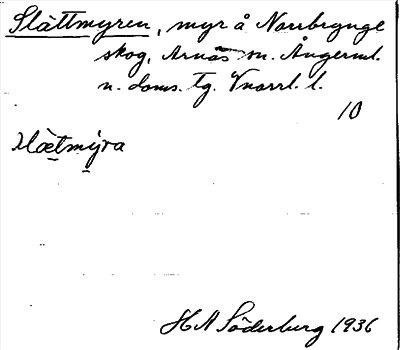 Slåttmyren, myr å Norrbrynge
skog, Arnäs sn. Ångerml.
n. doms. tg. Vnorrl. l.
10
slòtmýra
H A Söderberg 1936